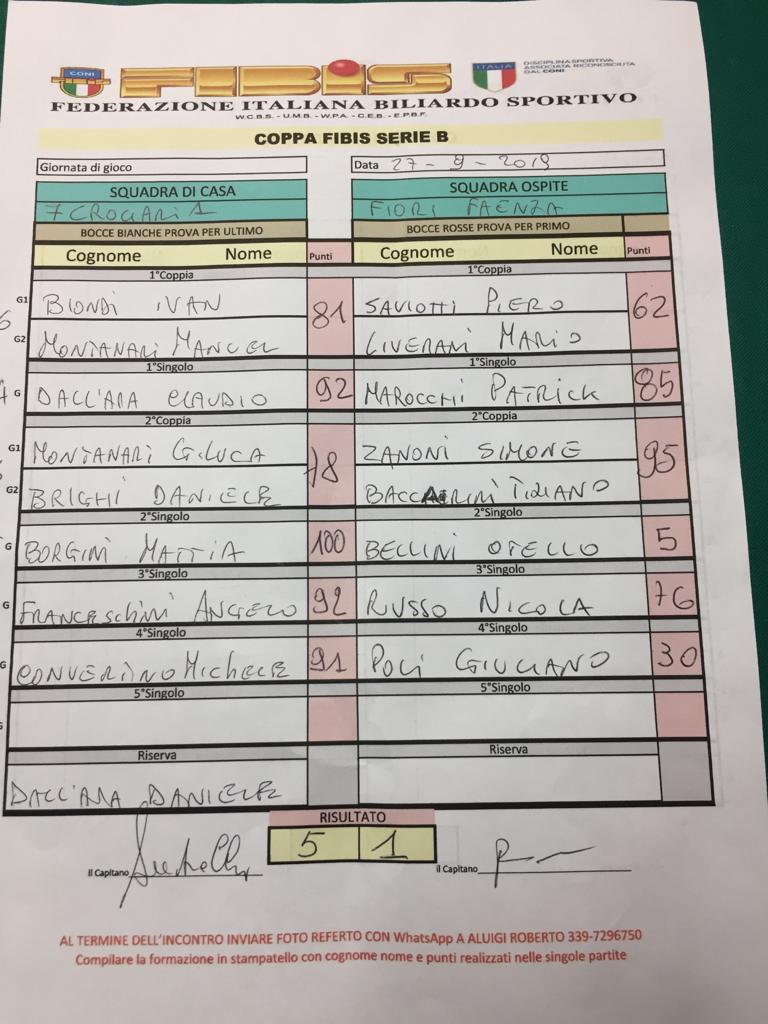 CONI
FIBIS
ITALIA
DISCIPLINA SPORTIVA
ASSOCIATA RICONOSCIUTA
DAL CONI
FEDERAZIONE ITALIANA BILIARDO SPORTIVO
W.C.B.S. - U.M.B. - W.P.A. - C.E.B. - E.P.B.F.
COPPA FIBIS SERIE B
Giornata di gioco Data 27-9-2019
SQUADRA DI CASA SQUADRA OSPITE
7 CROCIARI 1 FIORI FAENZA
BOCCE BIANCHE PROVA PER ULTIMO BOCCE ROSSE PROVA PER PRIMO
Cognome Nome Punti Cognome Nome Punti
1°Coppia 1°Coppia
G1 BIONDI IVAN 81 SAVIOTTI PIERO 62
G2 MONTANARI MANUEL LIVERANI MARIO
1°Singolo 1°Singolo
G DALL'ARA CLAUDIO 92 MAROCCHI PATRICK 85
2°Coppia 2°Coppia
G1 MONTANARI G.LUCA 78 ZANONI SIMONE 95
G2 BRIGHI DANIELE BACCARINI TIZIANO
2°Singolo 2°Singolo
G BORGINI MATTIA 100 BELLINI OTELLO 5
3°Singolo 3°Singolo
G FRANCESCHINI ANGELO 92 RUSSO NICOLA 76
4°Singolo 4°Singolo
G CONVERTINO MICHELE 91 POLI GIULIANO 30
5°Singolo 5°Singolo
Riserva Riserva
DALL'ARA DANIELE
RISULTATO
5 1
il Capitano il Capitano
AL TERMINE DELL'INCONTRO INVIARE FOTO REFERTO CON WhatsApp A ALUIGI ROBERTO 339-7296750
Compilare la formazione in stampatello con cognome nome e punti realizzati nelle singole partite